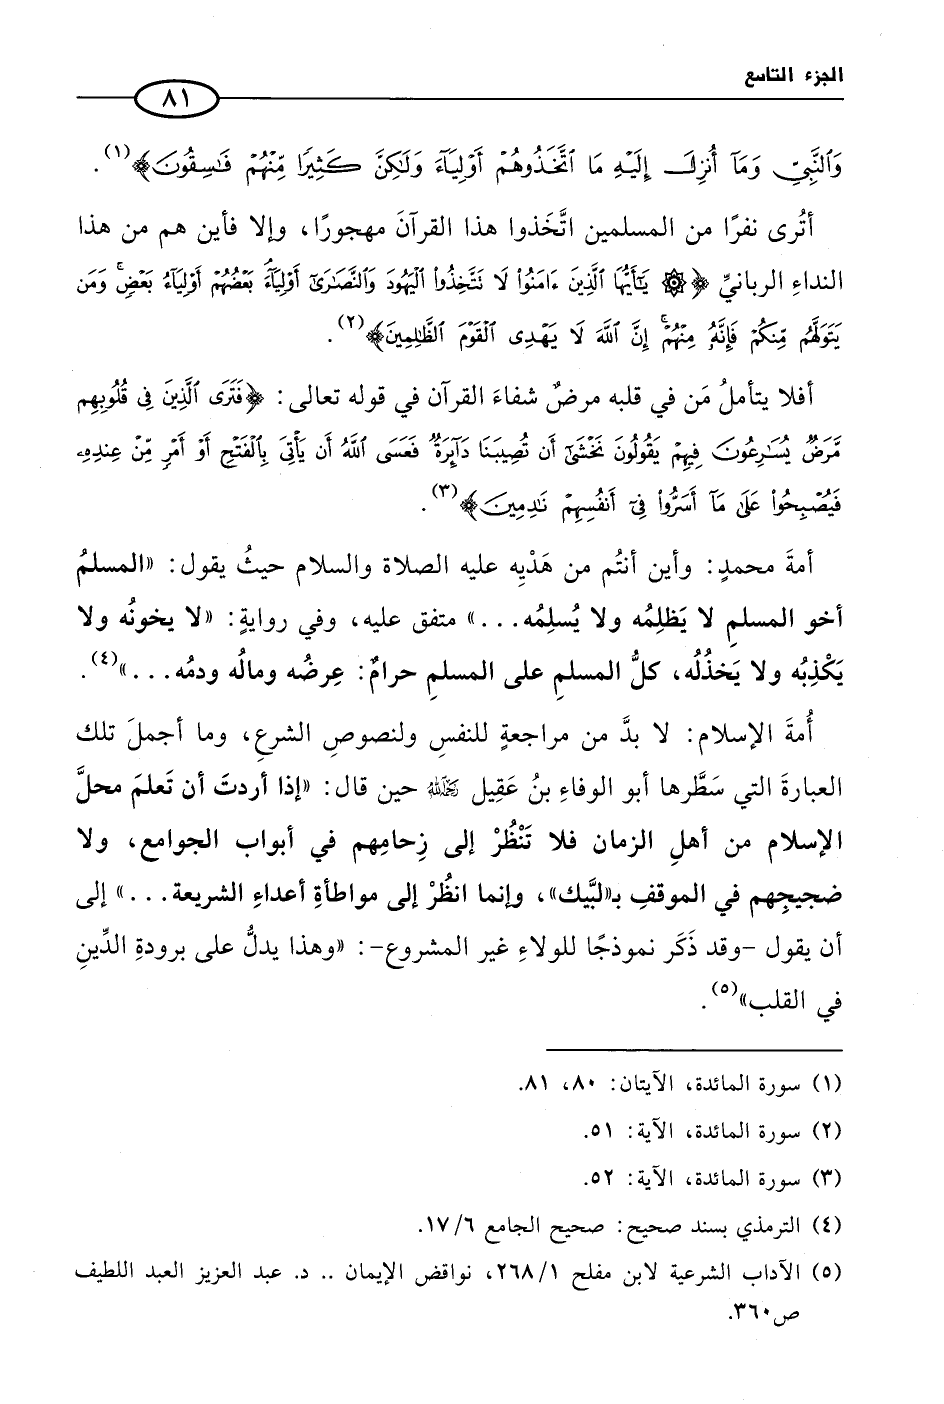 الجزء التاسع
٨١
وَٱلنَّبِيِّ وَمَآ أُنزِلَ إِلَيْهِ مَا ٱتَّخَذُوهُمْ أَوْلِيَآءَ وَلَٰكِنَّ كَثِيرًا مِّنْهُمْ فَٰسِقُونَ﴾(١).
أتُرى نفرًا من المسلمين اتَّخَذوا هذا القرآنَ مهجورًا، وإلا فأين هم من هذا
النداءِ الربانيِّ ﴿۞ يَٰٓأَيُّهَا ٱلَّذِينَ ءَامَنُوا۟ لَا تَتَّخِذُوا۟ ٱلْيَهُودَ وَٱلنَّصَٰرَىٰٓ أَوْلِيَآءَۘ بَعْضُهُمْ أَوْلِيَآءُ بَعْضٍۚ وَمَن
يَتَوَلَّهُم مِّنكُمْ فَإِنَّهُۥ مِنْهُمْۗ إِنَّ ٱللَّهَ لَا يَهْدِى ٱلْقَوْمَ ٱلظَّٰلِمِينَ﴾(٢).
أفلا يتأملُ مَن في قلبه مرضٌ شفاءَ القرآن في قوله تعالى: ﴿فَتَرَى ٱلَّذِينَ فِى قُلُوبِهِم
مَّرَضٌ يُسَٰرِعُونَ فِيهِمْ يَقُولُونَ نَخْشَىٰٓ أَن تُصِيبَنَا دَآئِرَةٌۚ فَعَسَى ٱللَّهُ أَن يَأْتِىَ بِٱلْفَتْحِ أَوْ أَمْرٍ مِّنْ عِندِهِۦ
فَيُصْبِحُوا۟ عَلَىٰ مَآ أَسَرُّوا۟ فِىٓ أَنفُسِهِمْ نَٰدِمِينَ﴾(٣).
أمةَ محمدٍ: وأين أنتُم من هَدْيِه عليه الصلاة والسلام حيثُ يقول: «المسلمُ
أخو المسلمِ لا يَظلِمُه ولا يُسلِمُه...» متفق عليه، وفي روايةٍ: «لا يخونُه ولا
يَكْذِبُه ولا يَخذُلُه، كلُّ المسلمِ على المسلمِ حرامٌ: عِرضُه ومالُه ودمُه...»(٤).
أُمةَ الإسلام: لا بدَّ من مراجعةٍ للنفسِ ولنصوصِ الشرعِ، وما أجملَ تلك
العبارةَ التي سَطَّرها أبو الوفاءِ بنُ عَقِيل رحمه الله حين قال: «إذا أردتَ أن تَعلمَ محلَّ
الإسلام من أهلِ الزمان فلا تَنْظُرْ إلى زِحامِهم في أبواب الجوامع، ولا
ضجيجِهم في الموقفِ بـ«لبَّيك»، وإنما انظُرْ إلى مواطأةِ أعداءِ الشريعة...» إلى
أن يقول -وقد ذَكَر نموذجًا للولاءِ غير المشروع-: «وهذا يدلُّ على برودةِ الدِّينِ
في القلب»(٥).
(١) سورة المائدة، الآيتان: ٨٠، ٨١.
(٢) سورة المائدة، الآية: ٥١.
(٣) سورة المائدة، الآية: ٥٢.
(٤) الترمذي بسند صحيح: صحيح الجامع ١٧/٦.
(٥) الآداب الشرعية لابن مفلح ٢٦٨/١، نواقض الإيمان .. د. عبد العزيز العبد اللطيف
ص٣٦٠.